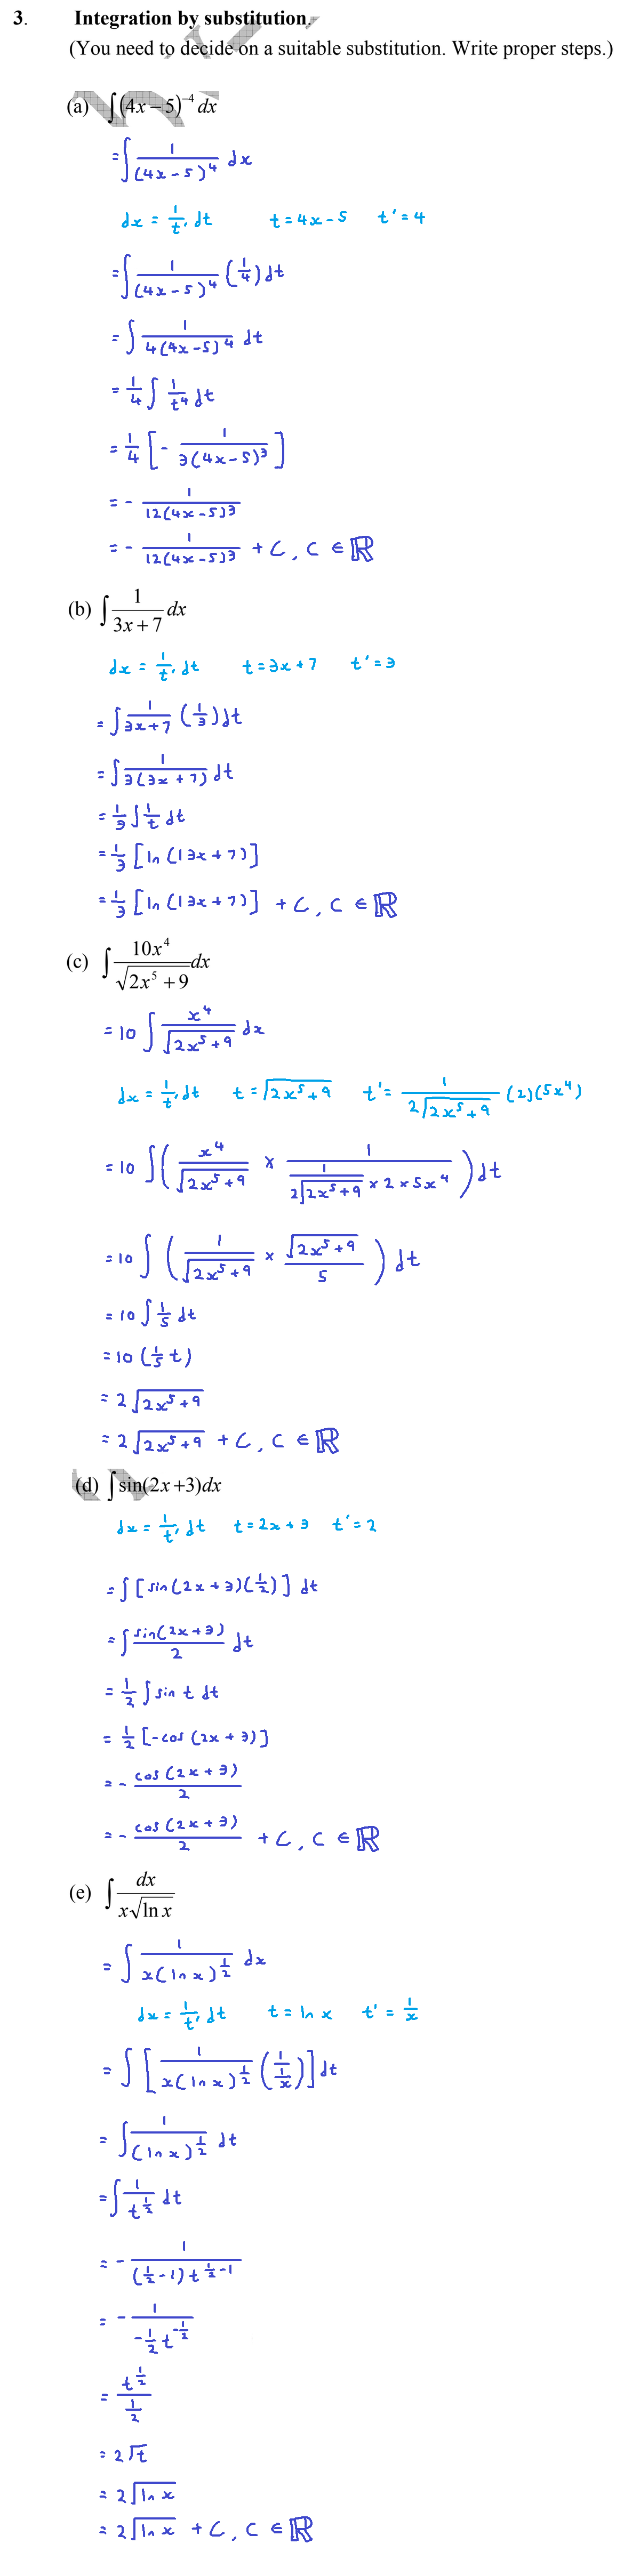 3. Integration by substitution.
(You need to decide on a suitable substitution. Write proper steps.)
(a) ∫(4x−5)^{-4} dx
= ∫ 1/(4x−5)^4 dx
dx = 1/t' dt    t = 4x−5    t' = 4
= ∫ 1/(4x−5)^4 (1/4) dt
= ∫ 1/(4(4x−5)^4) dt
= 1/4 ∫ 1/t^4 dt
= 1/4 [− 1/(3(4x−5)^3)]
= − 1/(12(4x−5)^3)
= − 1/(12(4x−5)^3) + C, C ∈ ℝ
(b) ∫ 1/(3x+7) dx
dx = 1/t' dt    t = 3x+7    t' = 3
= ∫ 1/(3x+7) (1/3) dt
= ∫ 1/(3(3x+7)) dt
= 1/3 ∫ 1/t dt
= 1/3 [ln(|3x+7)]
= 1/3 [ln(|3x+7)] + C, C ∈ ℝ
(c) ∫ 10x^4/√(2x^5+9) dx
= 10 ∫ x^4/√(2x^5+9) dx
dx = 1/t' dt    t = √(2x^5+9)    t' = 1/(2√(2x^5+9)) (2)(5x^4)
= 10 ∫ ( x^4/√(2x^5+9) × 1/(1/(2√(2x^5+9)) × 2 × 5x^4) ) dt
= 10 ∫ ( 1/√(2x^5+9) × √(2x^5+9)/5 ) dt
= 10 ∫ 1/5 dt
= 10 (1/5 t)
= 2√(2x^5+9)
= 2√(2x^5+9) + C, C ∈ ℝ
(d) ∫ sin(2x+3)dx
dx = 1/t' dt    t = 2x+3    t' = 2
= ∫ [sin(2x+3)(1/2)] dt
= ∫ sin(2x+3)/2 dt
= 1/2 ∫ sin t dt
= 1/2 [−cos(2x+3)]
= − cos(2x+3)/2
= − cos(2x+3)/2 + C, C ∈ ℝ
(e) ∫ dx/(x√(ln x))
= ∫ 1/(x(ln x)^{1/2}) dx
dx = 1/t' dt    t = ln x    t' = 1/x
= ∫ [ 1/(x(ln x)^{1/2}) (1/(1/x)) ] dt
= ∫ 1/(ln x)^{1/2} dt
= ∫ 1/t^{1/2} dt
= − 1/((1/2−1)t^{1/2−1})
= − 1/(−1/2 t^{-1/2})
= t^{1/2}/(1/2)
= 2√t
= 2√(ln x)
= 2√(ln x) + C, C ∈ ℝ